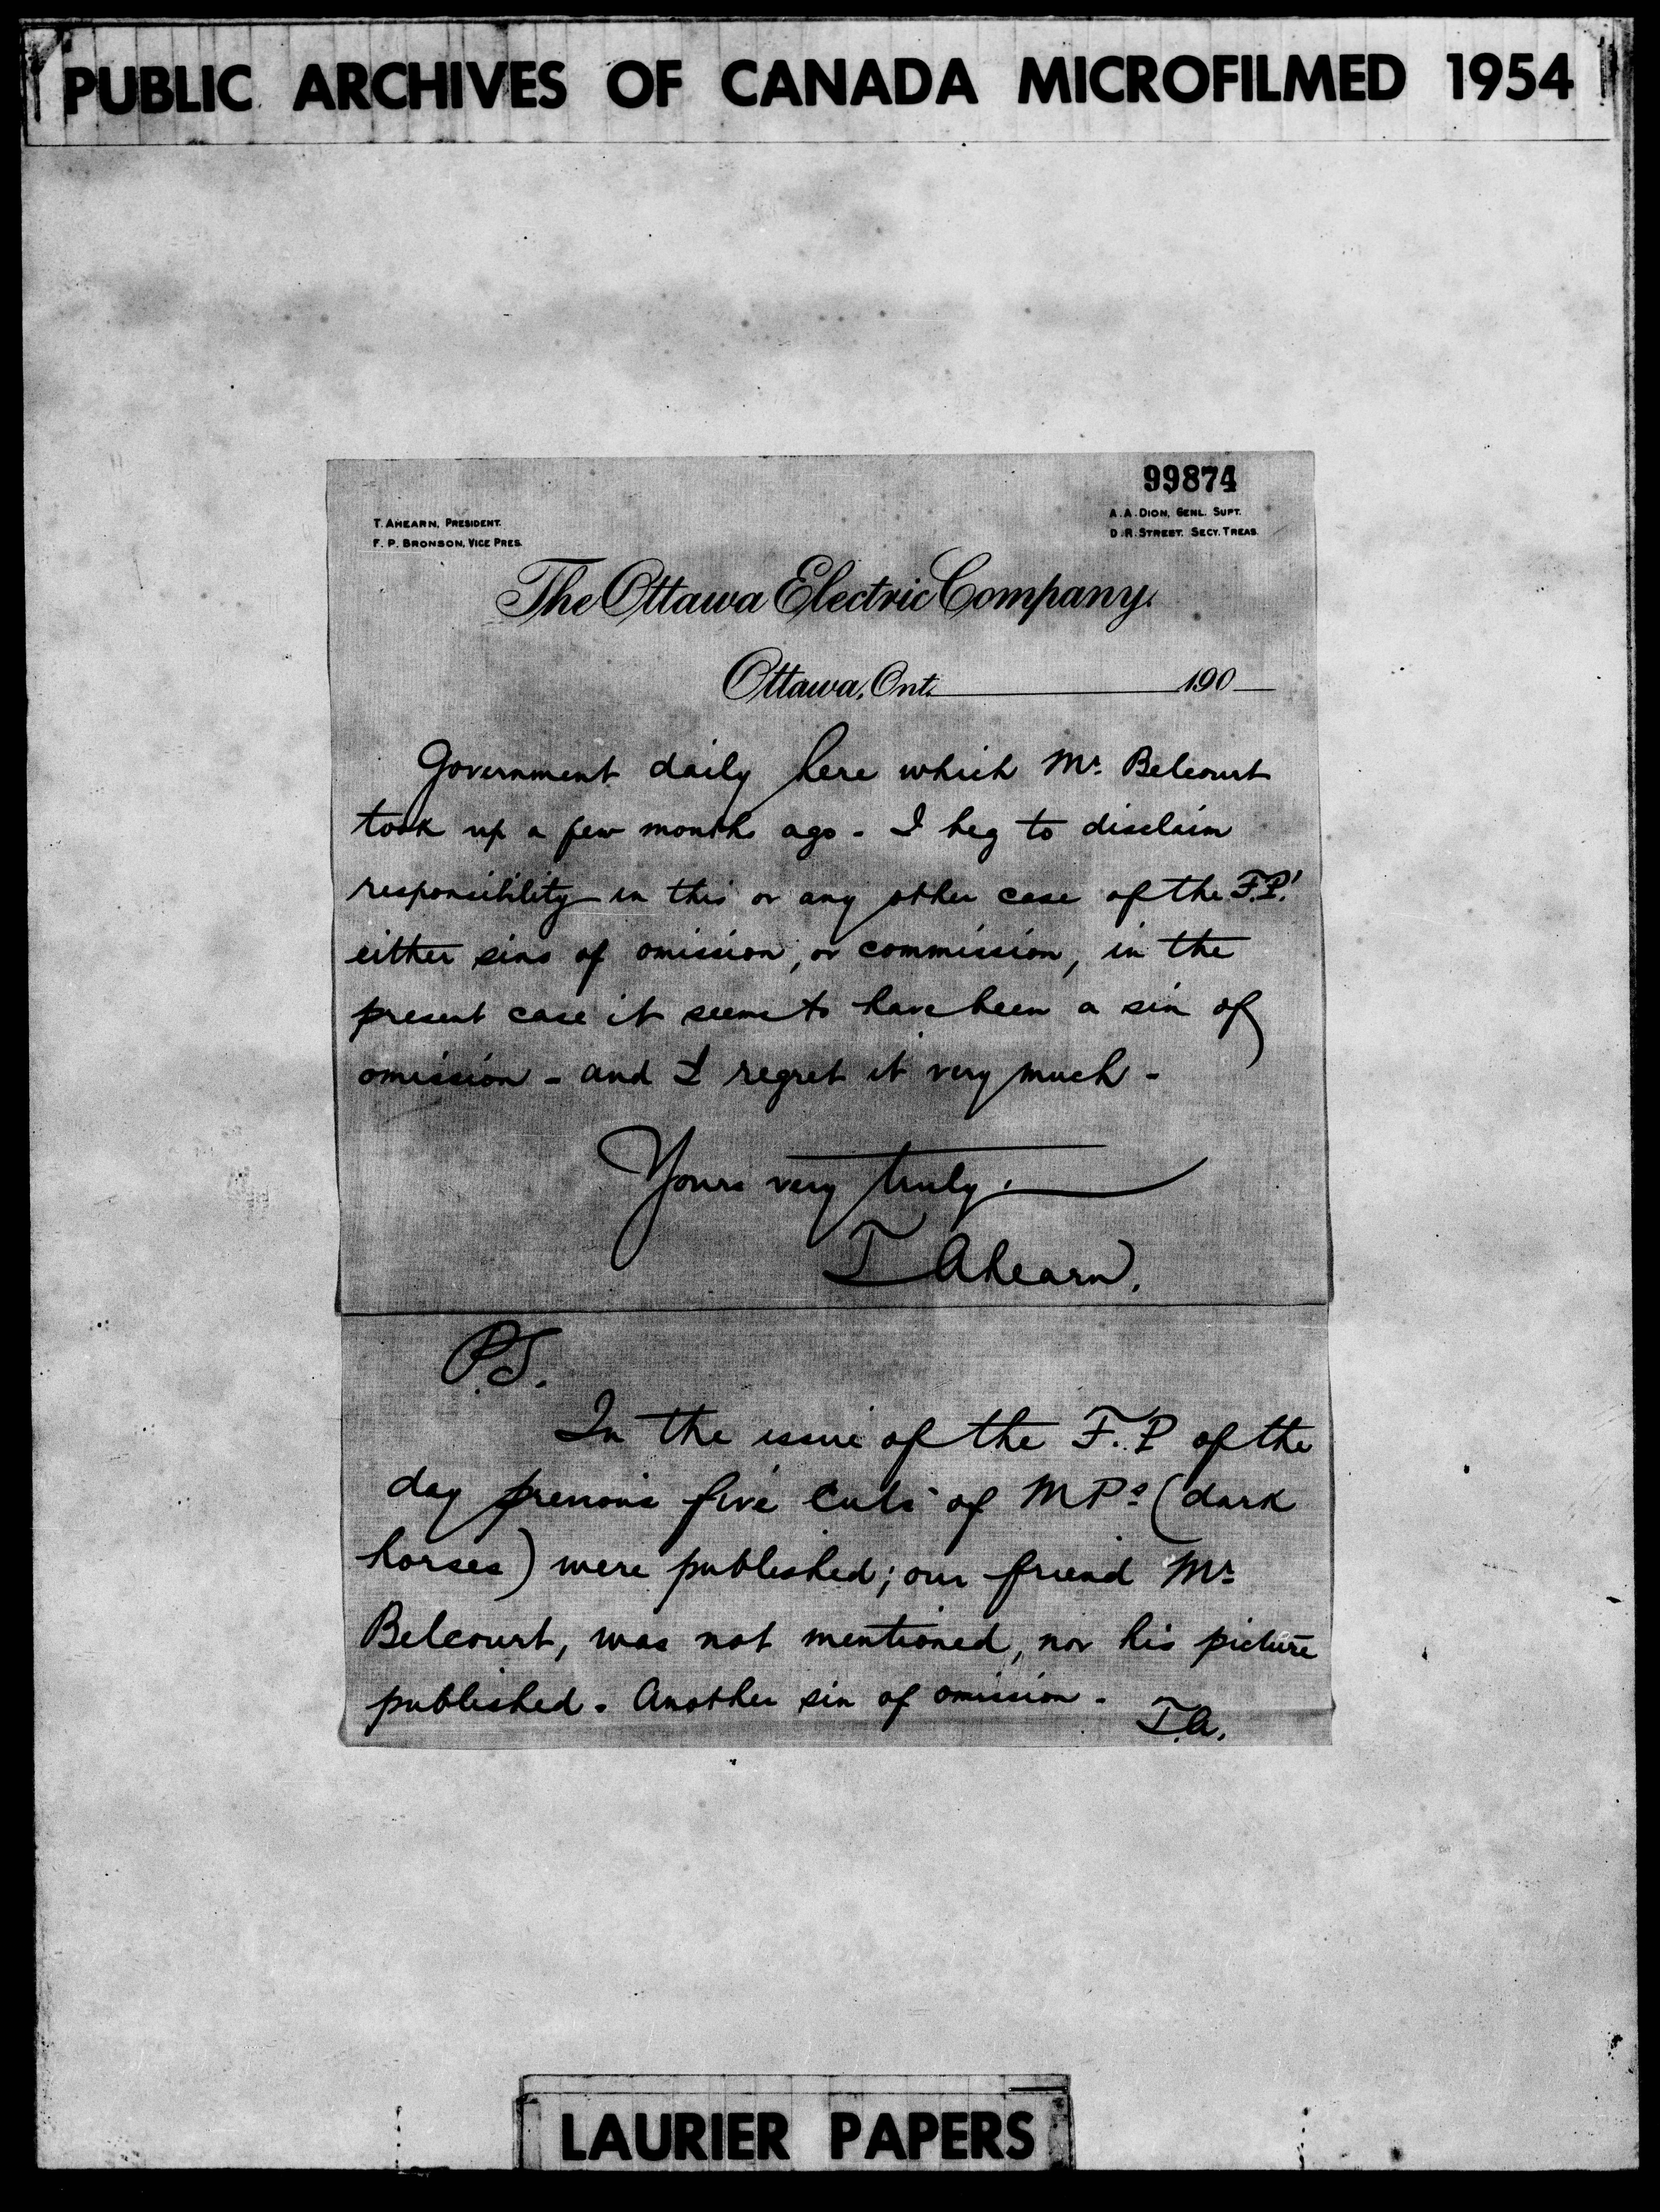 PUBLIC ARCHIVES OF CANADA MICROFILMED 1954
99874
T. AHEARN, PRESIDENT.
F. P. BRONSON, VICE PRES.
A. A. DION, GENL. SUPT.
D. R. STREET. SECY. TREAS.
The Ottawa Electric Company.
Ottawa, Ont. 190
Government daily here which Mr. Belcourt
took up a few month ago - I beg to disclaim
responsibility in this or any other case of the F.P.'
either sins of omission, or commission, in the
present case it seems to have been a sin of
omission - and I regret it very much -
Yours very truly.
T Ahearn.
P.S.
In the issue of the F.P of the
day previous five cuts of MPs (dark
horses) were published; our friend Mr
Belcourt, was not mentioned, nor his picture
published. Another sin of omission -
T.A.
LAURIER PAPERS